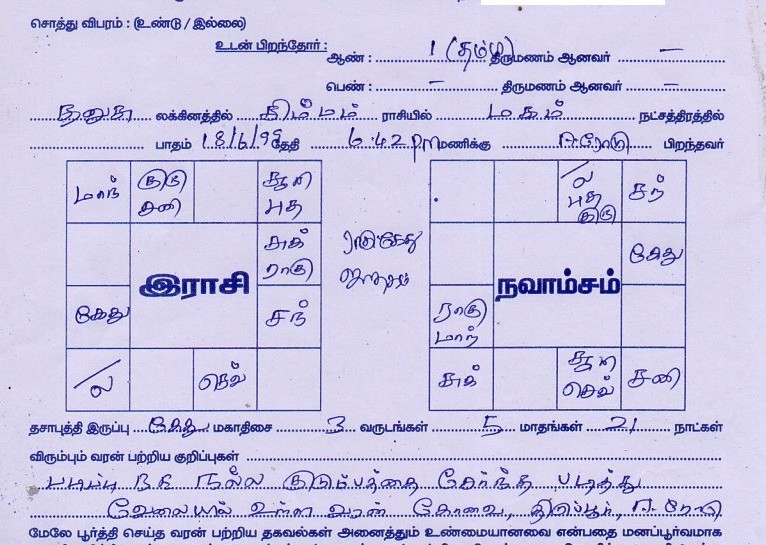 சொத்து விபரம் : (உண்டு / இல்லை)
உடன் பிறந்தோர் : ஆண் : 1 (தம்பி) திருமணம் ஆனவர் —
பெண் : — திருமணம் ஆனவர் —
தனுசு லக்கினத்தில் சிம்மம் ராசியில் மகம் நட்சத்திரத்தில்
பாதம் 18/6/99 தேதி 6.42 pm மணிக்கு ஈரோடு பிறந்தவர்
மாந் குரு சனி சூரி புத
சுக் ராகு
இராசி
கேது சந்
/ல செவ்
ராகு கேது
ஜாதகம்
/ல புத குரு சந்
கேது
நவாம்சம்
ராகு மாந்
சுக் சூரி செவ் சனி
தசாபுத்தி இருப்பு கேது மகாதிசை 3 வருடங்கள் 5 மாதங்கள் 21 நாட்கள்
விரும்பும் வரன் பற்றிய குறிப்புகள்
நல்ல குடும்பத்தை சேர்ந்த படித்து
வேலையில் உள்ள வரன் கோவை, திருப்பூர், ஈரோடு
மேலே பூர்த்தி செய்த வரன் பற்றிய தகவல்கள் அனைத்தும் உண்மையானவை என்பதை மனப்பூர்வமாக